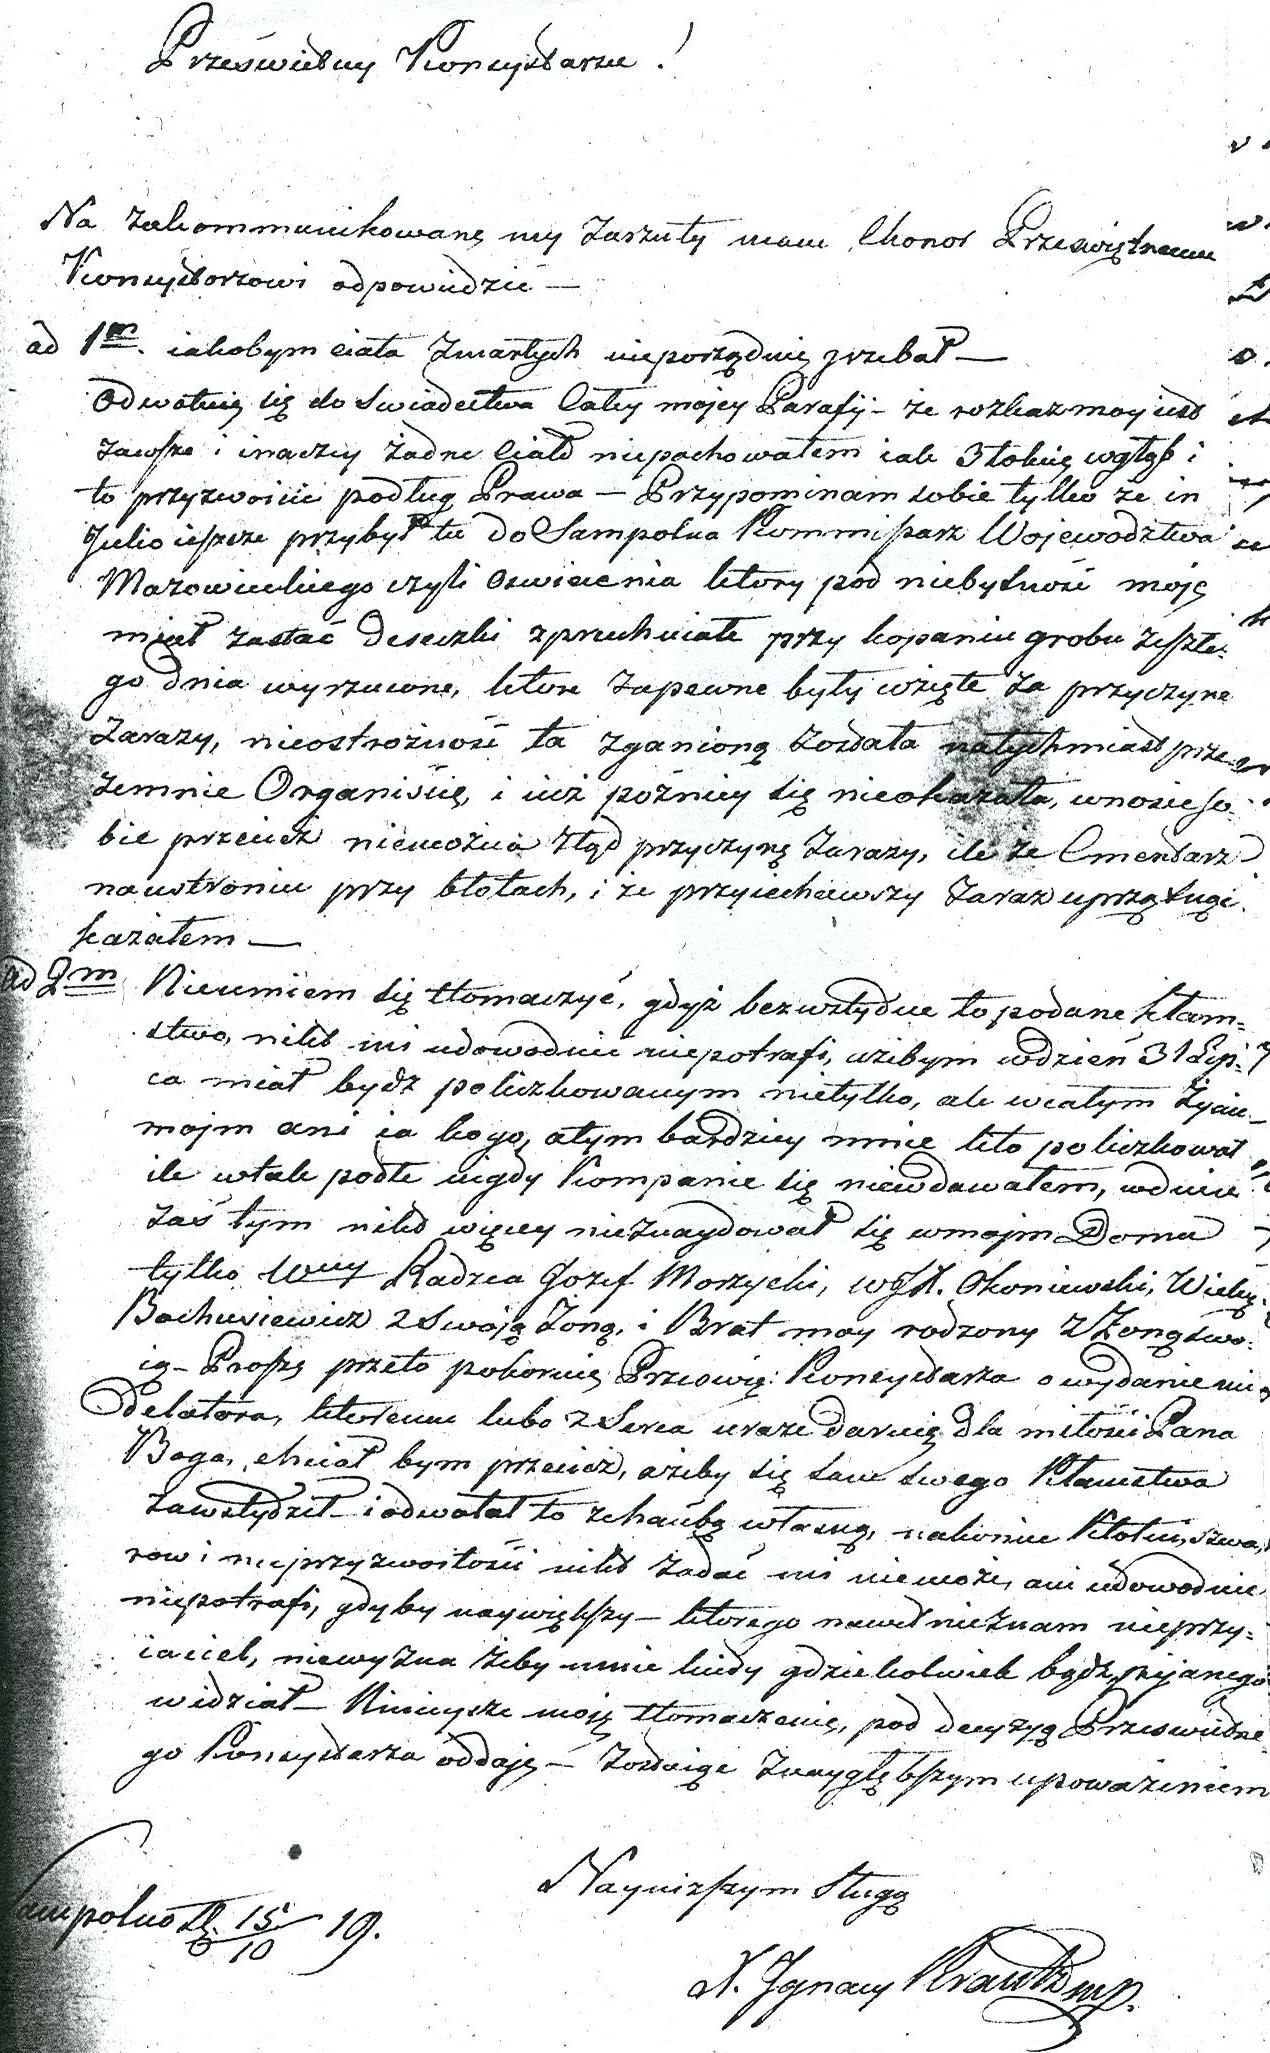 Prześwietny Konsystarzu!
Na zakommunikowane my zarzuty mam Chonor Przeświętnemu
Konsystorzowi odpowiedzić —
ad 1m. iakobym ciała zmarłych nieporządnie grzebał —
Odwołuię się do Swiadectwa całey mojey Parafij - że rozkaz moy iest
zawsze i inaczy żadne Ciało niepochowałem iak 3 łokcie wgłąb i
to przyzwoicie podług Prawa — Przypominam sobie tylko że in
Julio ieszcze przybył tu do Sampolna Kommissarz Wojewodztwa
Mazowieckiego czyli Oswiecenia ktory pod niebytność moję
miał zastać deseczki zpruchniałe przy kopaniu grobu zeszłe-
go dnia wyrzucone, ktore zapewne były wzięte za przyczyne
zarazy, nieostrożność ta zganioną została natychmiast prze-
zemnie Organiście, i iuż poźniey się nieokazała, wnosić so-
bie przecież niemożna ztąd przyczynę zarazy, ile że Cmentarz
na ustroniu przy błotach, i że przyiechawszy zaraz uprzątnąć
kazałem —
ad 2m Nieumiem się tłomaczyć, gdyż bezwstydne to podane kłam-
stwo, nikt mi udowodnić niepotrafi, ażebym wdzień 31 Lip-
ca miał bydź policzkowanym nietylko, ale wcałym Życiu
mojm ani ia kogo, atym bardziey mnie kto policzkował
ile wtak podłe nigdy Kompanie się niewdawałem, wdniu
zaś tym nikt więcey nieznaydował się wmojm Domu
tylko Wny Radzca Jozef Morzycki, Okoniewski,
Bachusiewicz z Swoją Żoną, i Brat moy rodzony z Żoną swo-
ią - Proszę przeto pokornie Prześwię: Konsystarza o wydanie mi
Delatora, ktoremu lubo z Serca uraze daruię dla miłości Pana
Boga, chciał bym przecież, ażeby się sam swego Kłamstwa
zawstydził - i odwołał to zhańbą własną, nakoniec Kłotni, swa-
row i nieprzyzwoitości nikt zadać mi niemoże, ani udowodnić
niepotrafi, gdyby naywiększy - ktorego nawet nieznam nieprzy-
iaciel, niewyzna żeby mnie kiedy gdziekolwiek bądź pijanego
widział - Ninieysze moję tłomaczenie, pod decyzyą Prześwietne-
go Konsystarza oddaję — Zostaige znaygłębszym upoważeniem
Nayniższym Sługą
Sampolno D. 15/10 19.
X. Jgnacy Krautz mp.